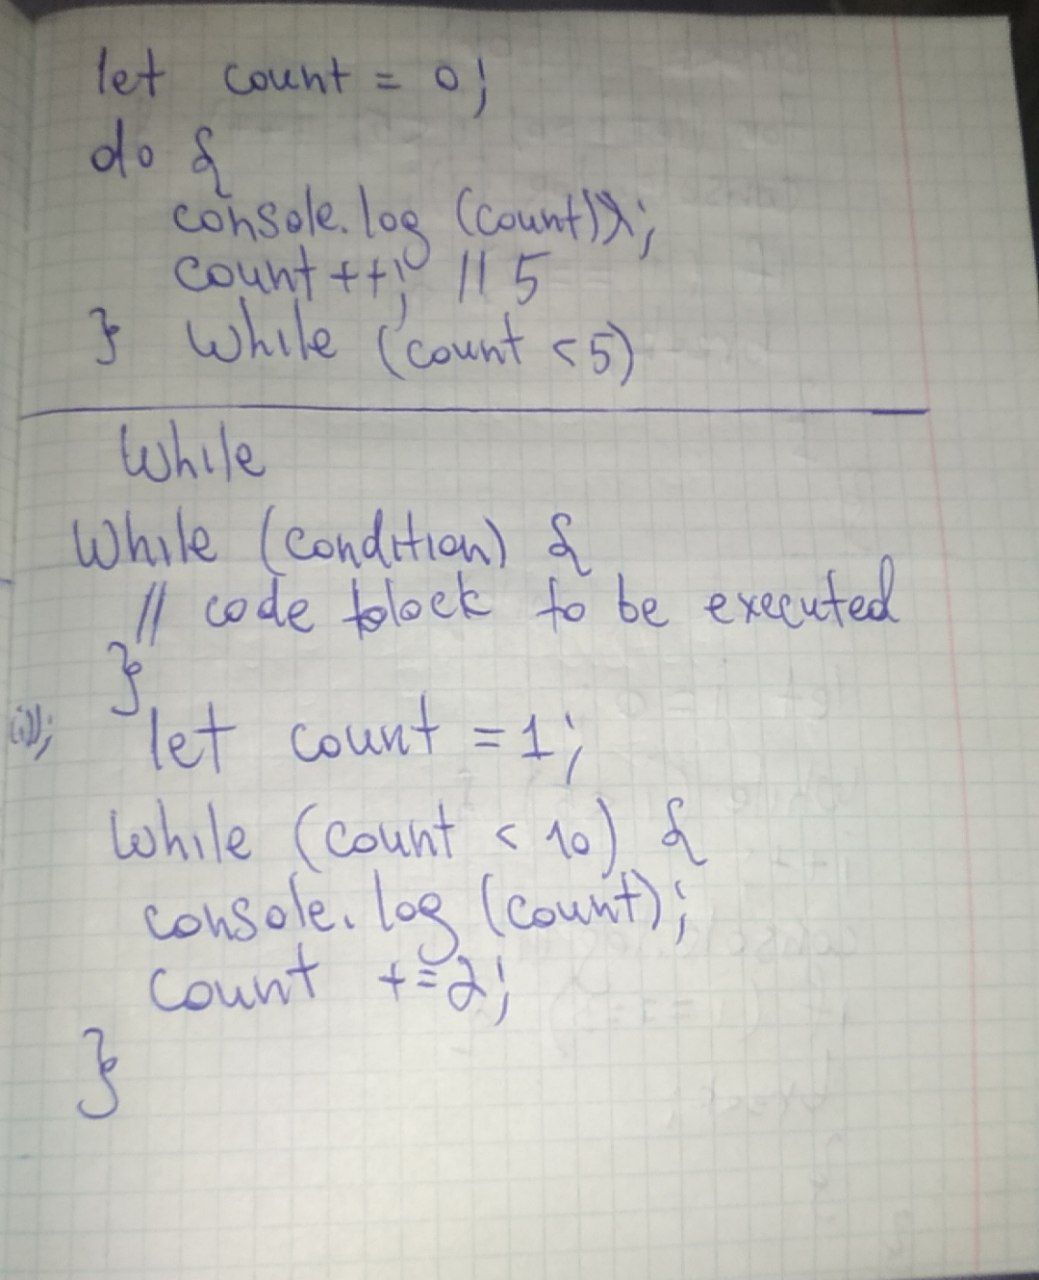 let count = 0;
do {
console.log (count);
count ++; // 5
} while (count < 5)
While
While (condition) {
// code block to be executed
}
let count = 1;
While (count < 10) {
console.log (count);
count += 2;
}